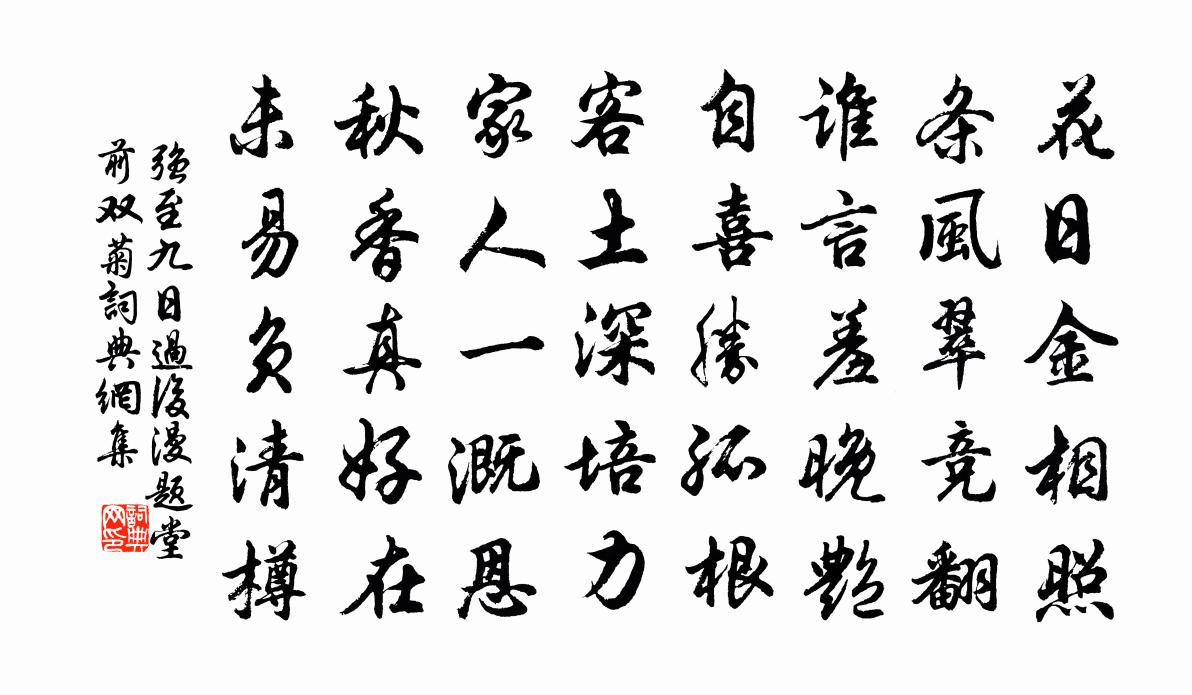 花日金相照
条風翠竞翻
谁言羞晚艷
自喜勝孤根
客土深培力
家人一溉恩
秋香真好在
未易负清樽
強至九日過後漫题堂
前双菊詞典網集
詞典
网印